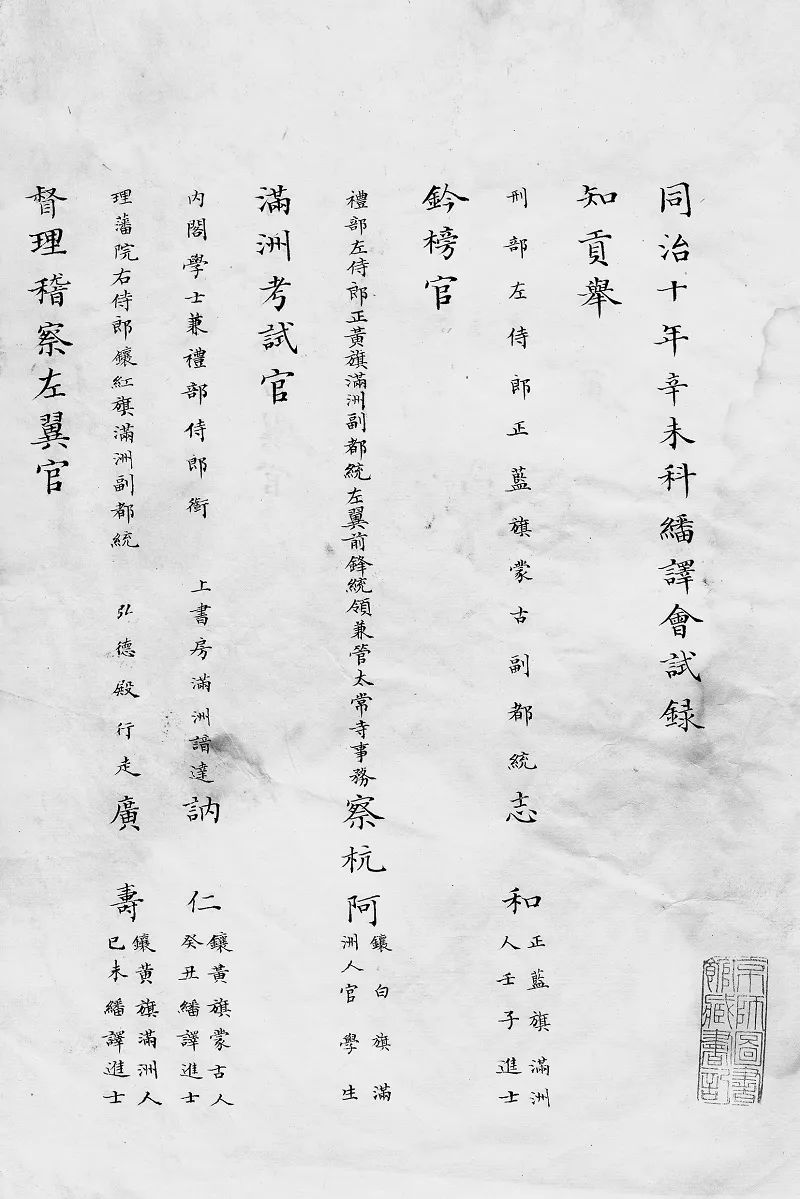 同治十年辛未科繙譯會試録
知貢舉
刑部左侍郎正藍旗蒙古副都統志和正藍旗滿洲
人壬子進士
鈐榜官
禮部左侍郎正黃旗滿洲副都統左翼前鋒統領兼管太常寺事務察杭阿鑲白旗滿
洲人官學生
滿洲考試官
内閣學士兼禮部侍郎銜 上書房滿洲諳達訥仁鑲黃旗蒙古人
癸丑繙譯進士
理藩院右侍郎鑲紅旗滿洲副都統 弘德殿行走廣壽鑲黃旗滿洲人
已未繙譯進士
督理稽察左翼官
師圖書
館藏書